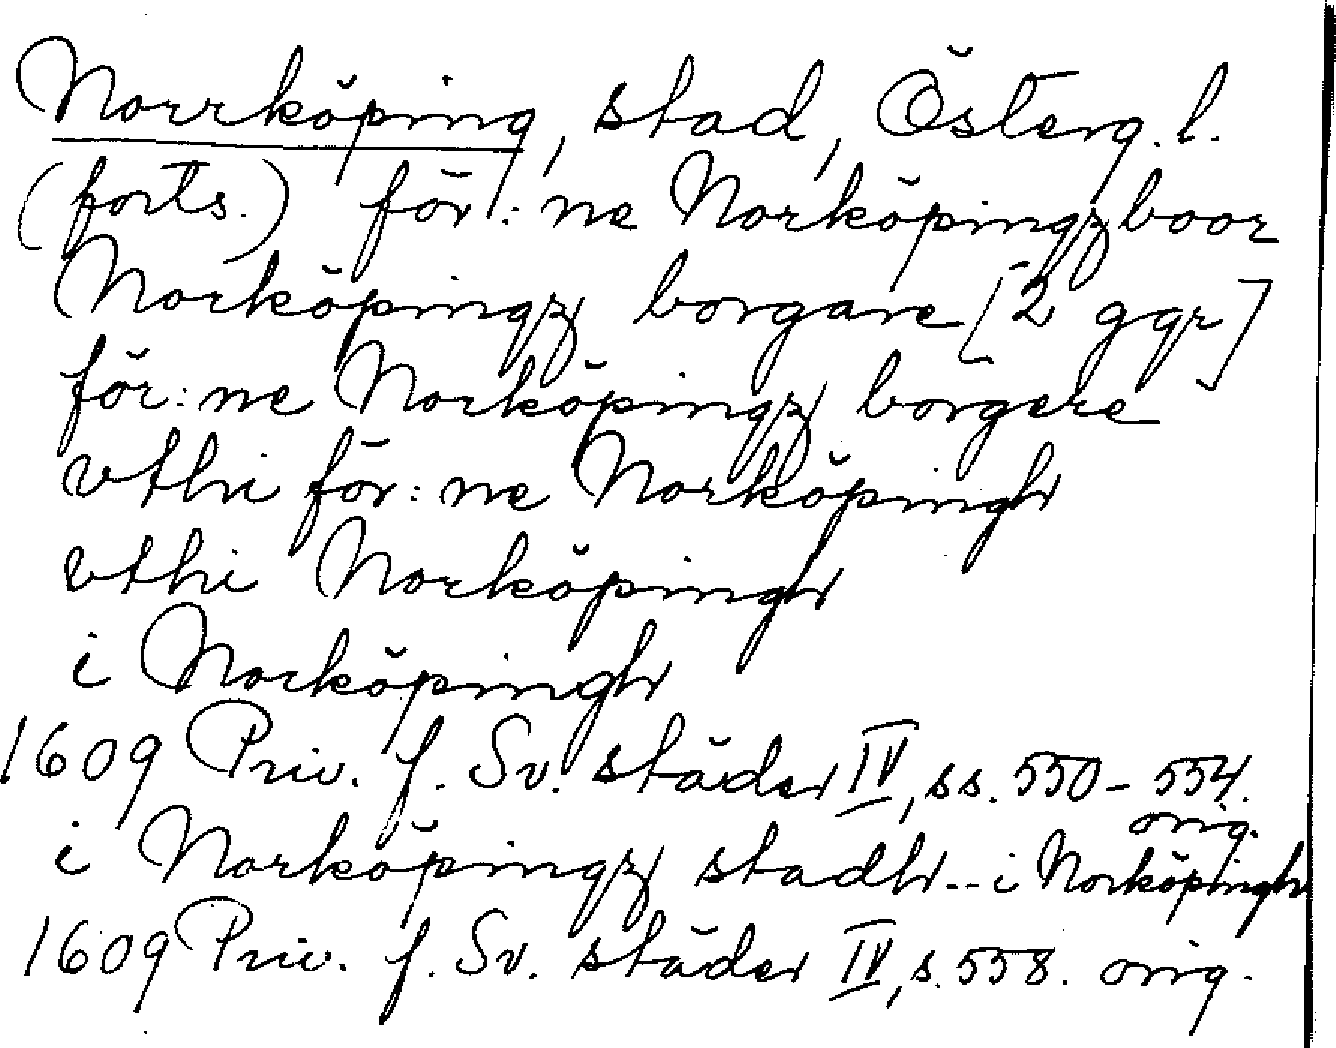 Norrköping, stad, Österg. l.
(forts.) för:ne Norköpingz boor
Norköpingz borgare [2 ggr]
för:ne Norköpingz börgere
vthi för:ne Norköpingh
vthi Norköpingh
i Norköpingh
1609 Priv. f. Sv. städer IV, ss. 550-554.
orig.
i Norköpingz stadh -- i Norköpingh
1609 Priv. f. Sv. städer IV, s. 558. orig.